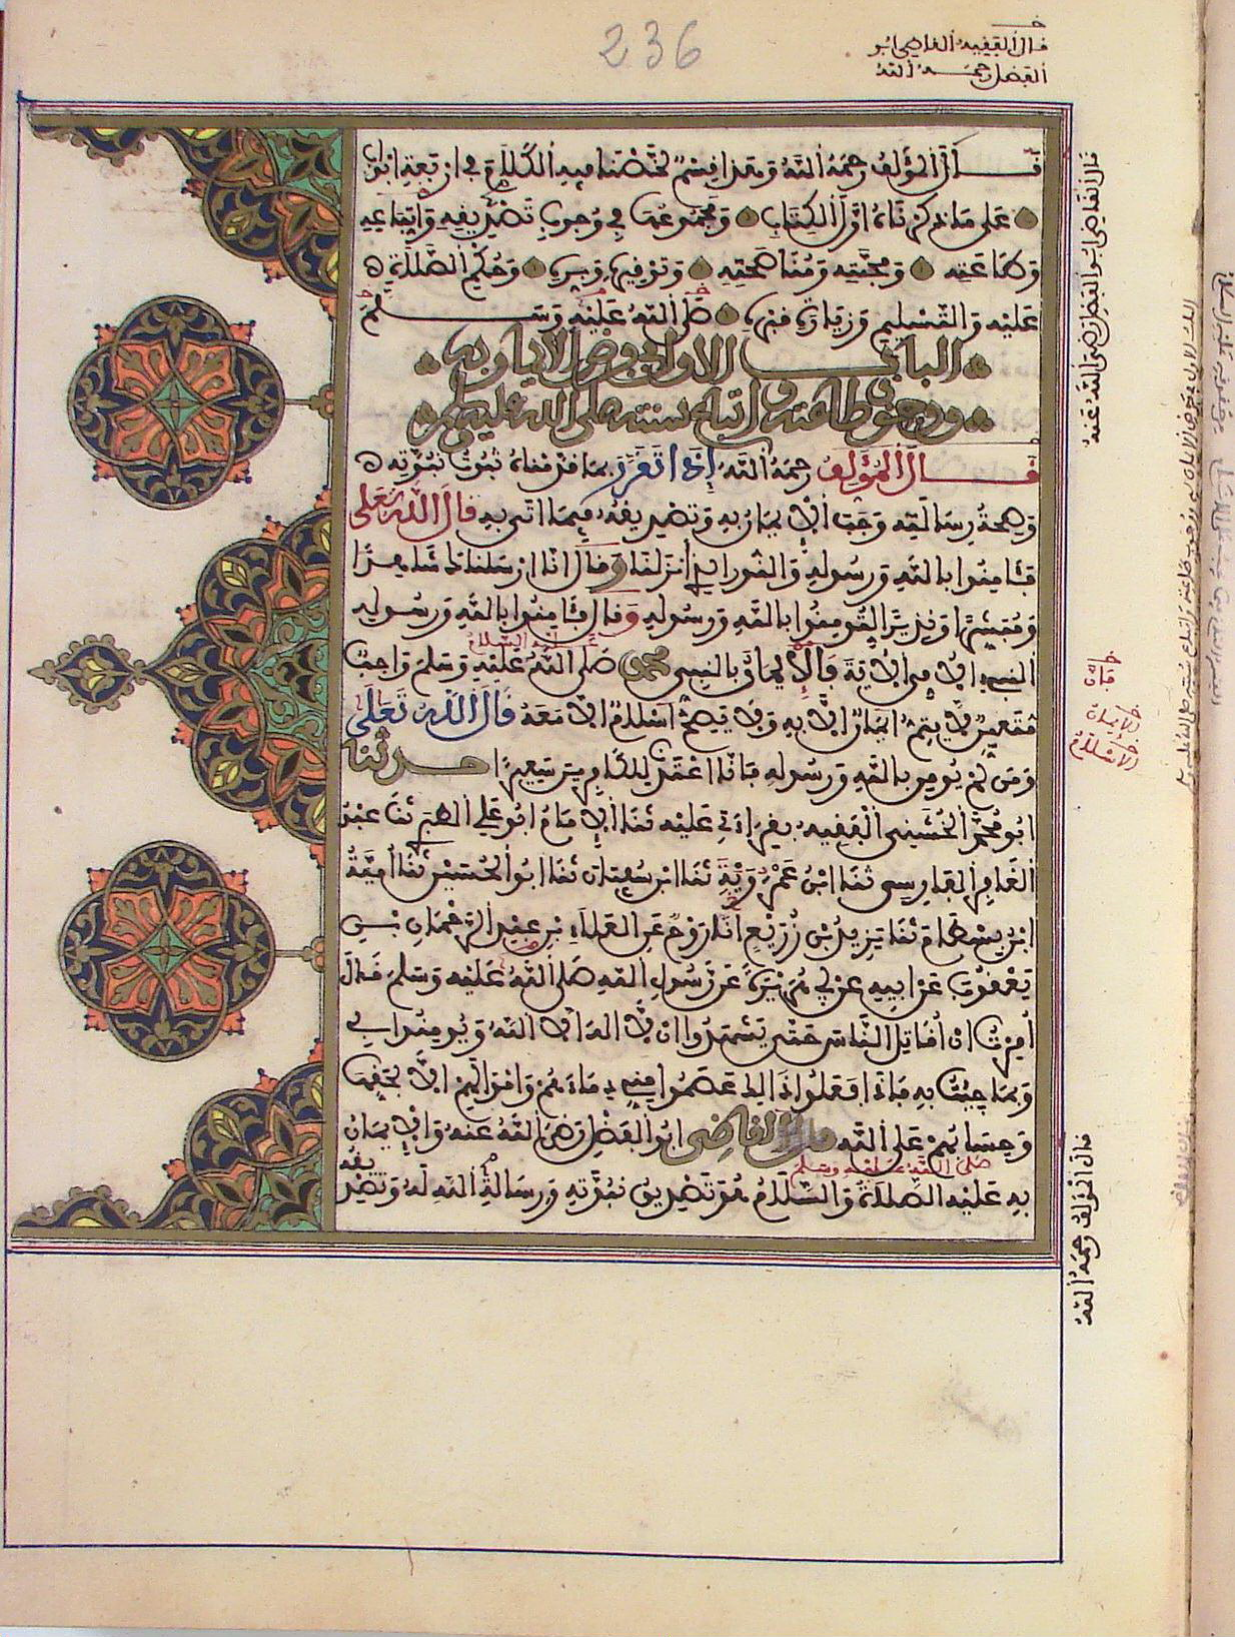 236
خـ
قال الفقيه القاضي ابو
الفضل رحمه الله
قَــال المؤلف رحمه الله وهذا قسم لخصنا فيه الكلام في اربعة ابواب
على ما ذكرناه اول الكتاب ومجموعها في وجوب تصديقه واتباعه
وطاعته ومحبته ومناصحته وتوقيره وبره وحكم الصلاة ه
عليه والتسليم وزيارة قبره صلى الله عليه وســلم
البــاب الاول في فرض الايمان به
ووجوب طاعته واتباع سنته صلى الله عليه وسلم
قــال المؤلف رحمه الله اذا تقرر بما قدمناه ثبوت نبوته ه
وصحة رسالته وجب الايمان به وتصديقه فيما اتى به قال الله تعلى
فـٔامنوا بالله ورسوله والنور الذي أنزلنا وقال انا ارسلناك شاهدا
ومبشرا ونذيرا لتومنوا بالله ورسوله وقال فـٔامنوا بالله ورسوله
النبيء الامي الاية فالإيمان بالنبي محمد صلى الله عليه وسلم واجب
عليه السلام
متعين لا يتم ايمان الا به ولا يصح اسلام الا معه قال الله تعلى
ومن لم يومن بالله ورسوله فانا اعتدنا للكافرين سعيرا حــدثنا
ابو محمد الخشني الفقيه بقراءتي عليه ثنا الامام ابو علي الطبري ثنا عبد
الغافر الفارسي ثنا ابن عمرويه ثنا ابن سفيان ثنا ابو الحسين ثنا امية
ابن بسطام ثنا يزيد بن زريع انا روح عن العلاء بن عبد الرحمان بن
يعقوب عن ابيه عن ابي هريرة عن رسول الله صلى الله عليه وسلم قال
أمرت ان أقاتل الناس حتى يشهدوا ان لا اله الا الله ويومنوا بي
وبما جيت به فاذا فعلوا ذالك عصموا مني دماءهم وأموالهم الا بحقها
وحسابهم على الله قال القاضي ابو الفضل رضي الله عنه والايمان
صلى الله عليه وسلم
به عليه الصلاة والسلام هو تصديق نبوته ورسالة الله له وتصديقه
قال القاضي ابو الفضل رضي الله عنه
خـ
فان
خـ
الايمان
خـ
الاسلام
قال المؤلف رحمه الله